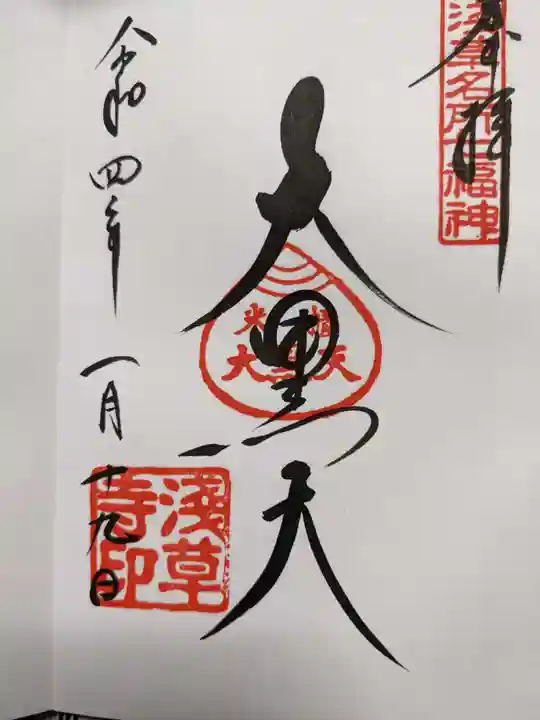 奉拝
浅草名所七福神
大黒天
米櫃
大黒天
令和四年一月十九日
浅草寺印